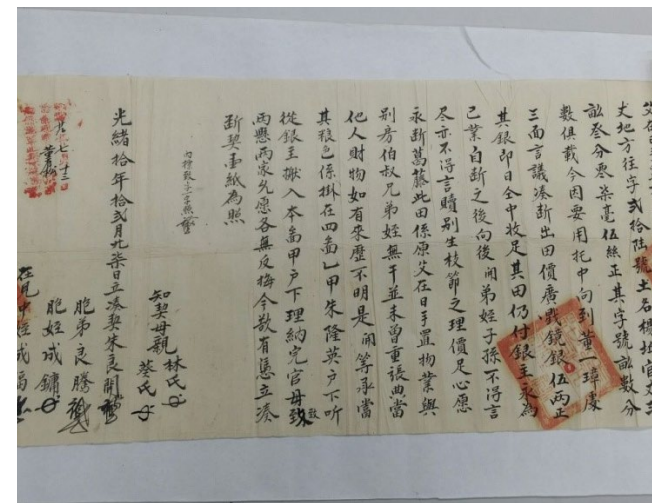 犬地方往字弐拾陸號土名
畝叁分零柒毫伍絲正其字號畝數分
數俱載今因要用托中向到董一瑋處
三面言議湊断出田價廣戥鏡銀伍兩正
其銀即日仝中收足其田仍付銀主永為
己業自断之後向後開弟姪子孫不得言
尽亦不得言贖別生枝節之理價足心愿
永断葛藤此田係原父在日手置物業與
別房伯叔兄弟姪無干並未曾重張典當
他人財物如有來歷不明是開等承當
其粮色係掛在四啚乙甲朱隆英户下听
從銀主撇入本啚甲户下理納完官毋致
两懸两家允愿各無反悔今欲有慿立湊
断契壹紙為照
内擦致字照
光緒拾年拾弍月廿柒日立湊契朱良開
知契母親林氏
蔡氏
胞弟良騰
胞姪成鏞
在見中姪成